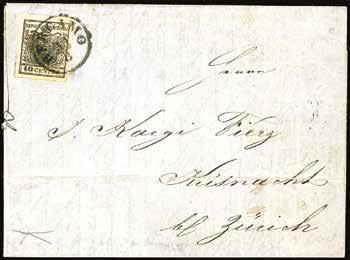 BERGAMO
10 CENTES
Herrn
J. Kaegi Fierz
Küsnacht
bei Zürich